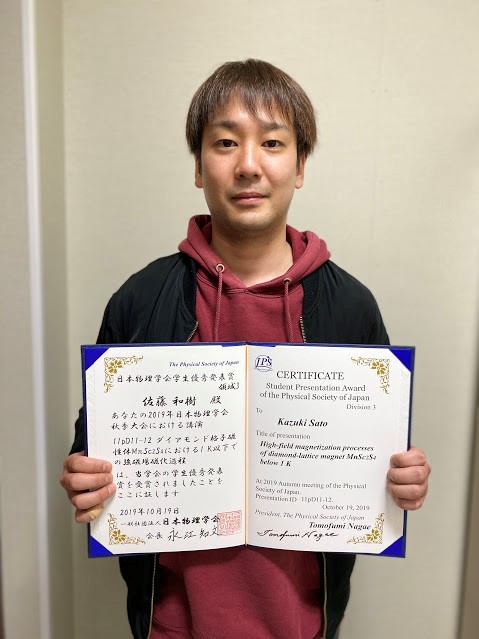 The Physical Society of Japan
日本物理学会学生優秀発表賞
領域3
佐藤 和樹 殿
あなたの2019年日本物理学会
秋季大会における講演
11pD11-12 ダイアモンド格子磁
性体MnSc2S4における1K以下で
の強磁場磁化過程
は、当学会の学生優秀発表
賞を受賞されましたことを
ここに証します
2019年10月19日
一般社団法人日本物理学会
会長 永江知文
JPS
CERTIFICATE
Student Presentation Award
of the Physical Society of Japan
Division 3
To
Kazuki Sato
Title of presentation
High-field magnetization processes
of diamond-lattice magnet MnSc2S4
below 1 K
At 2019 Autumn meeting of the Physical
Society of Japan.
Presentation ID 11pD11-12.
October 19, 2019
President, The Physical Society of Japan
Tomofumi Nagae
Tomofumi Nagae